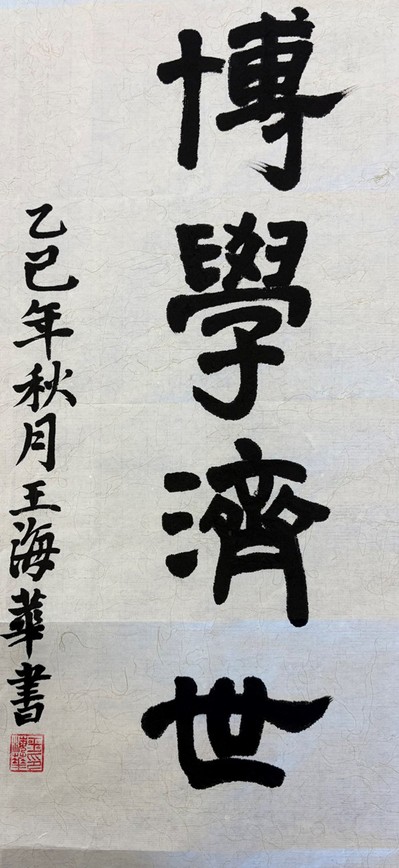 博學濟世
乙巳年秋月王海華書